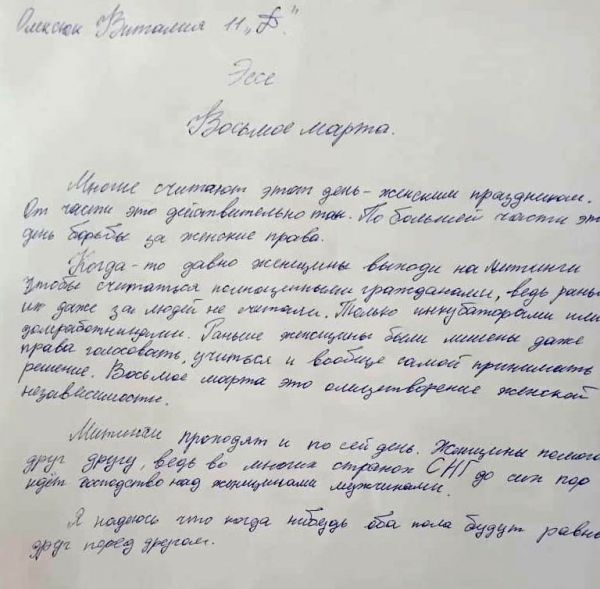 Олексюк Виталия 11 „Ф."
Эссе
Восьмое марта.
Многие считают этот день - женским праздником.
От части это действительно так. По большей части эт
день борьбы за женские права.
Когда-то давно женщины выходи на митинги
чтобы считаться полноценными гражданами, ведь рань
их даже за людей не считали. Только инкубаторами или
домработницами. Раньше женщины были лишены даже
права голосовать, учиться и вообще самой принимать
решение. Восьмое марта это олицетворение женской
независимости.
Митинги проходят и по сей день. Женщины помога
друг другу, ведь во многих странах СНГ до сих пор
идёт господство над женщинами мужчинами.
Я надеюсь что когда нибудь оба пола будут равны
друг перед другом.